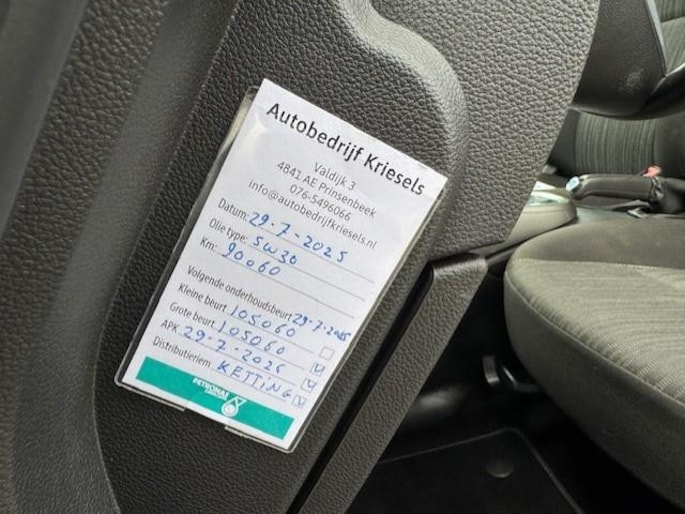 Autobedrijf Kriesels
Valdijk 3
4841 AE Prinsenbeek
076-5496066
info@autobedrijfkriesels.nl
Datum: 29-7-2025
Olie type: 5W30
Km: 90060
Volgende onderhoudsbeurt 29-7-2026
Kleine beurt 105060
Grote beurt 105060
APK 29-7-2026
Distributieriem KETTING
PETRONAS